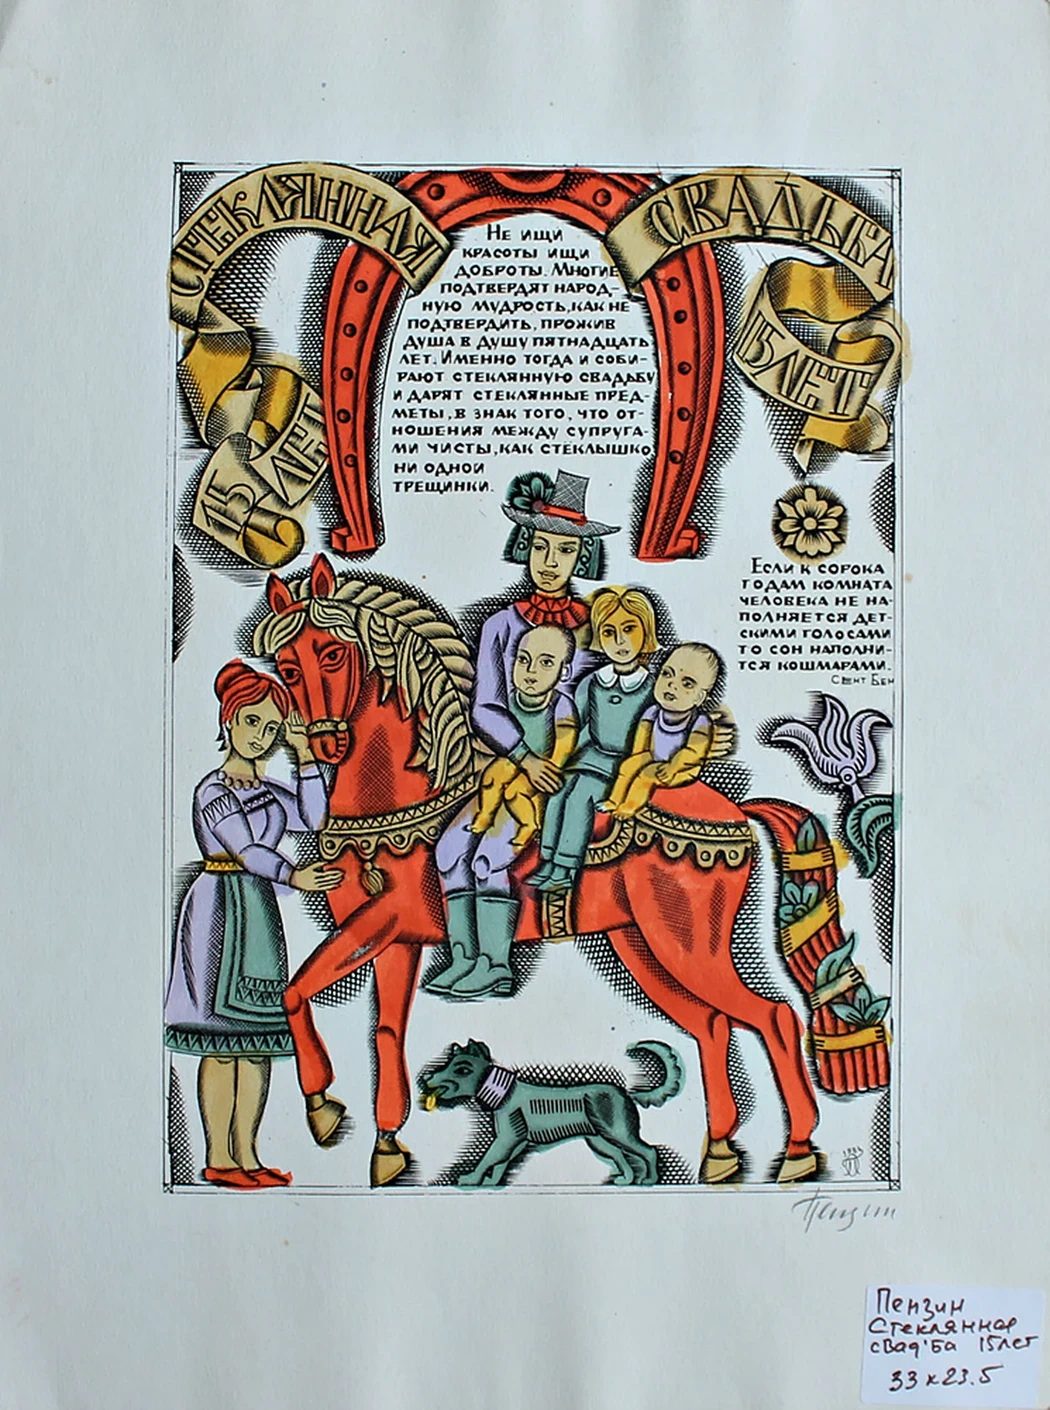 СТЕКЛЯННАЯ
СВАДЬБА
15 ЛЕТ
15 ЛЕТ
Не ищи
красоты ищи
доброты. Многие
подтвердят народ-
ную мудрость, как не
подтвердить, прожив
душа в душу пятнадцать
лет. Именно тогда и соби-
рают стеклянную свадьбу
и дарят стеклянные пред-
меты, в знак того, что от-
ношения между супруга-
ми чисты, как стеклышко
ни одной
трещинки.
Если к сорока
годам комната
человека не на-
полняется дет-
скими голосами
то он наполни-
тся кошмарами.
Сент Бев
Пензин
Пензин
Стеклянная
свадьба 15 лет
33 x 23.5